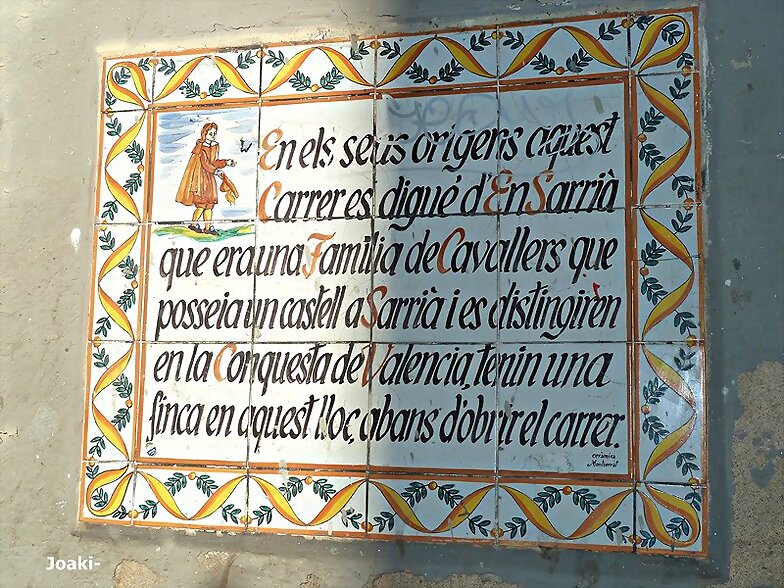 En els seus origens aquest
Carrer es digué d'En Sarrià
que era una Familia de Cavallers que
posseia un castell a Sarrià i es distingirèn
en la Conquesta de Valencia, tenin una
finca en aquest lloc, abans d'obrir el carrer.
ceràmica
Montserrat
Joaki-